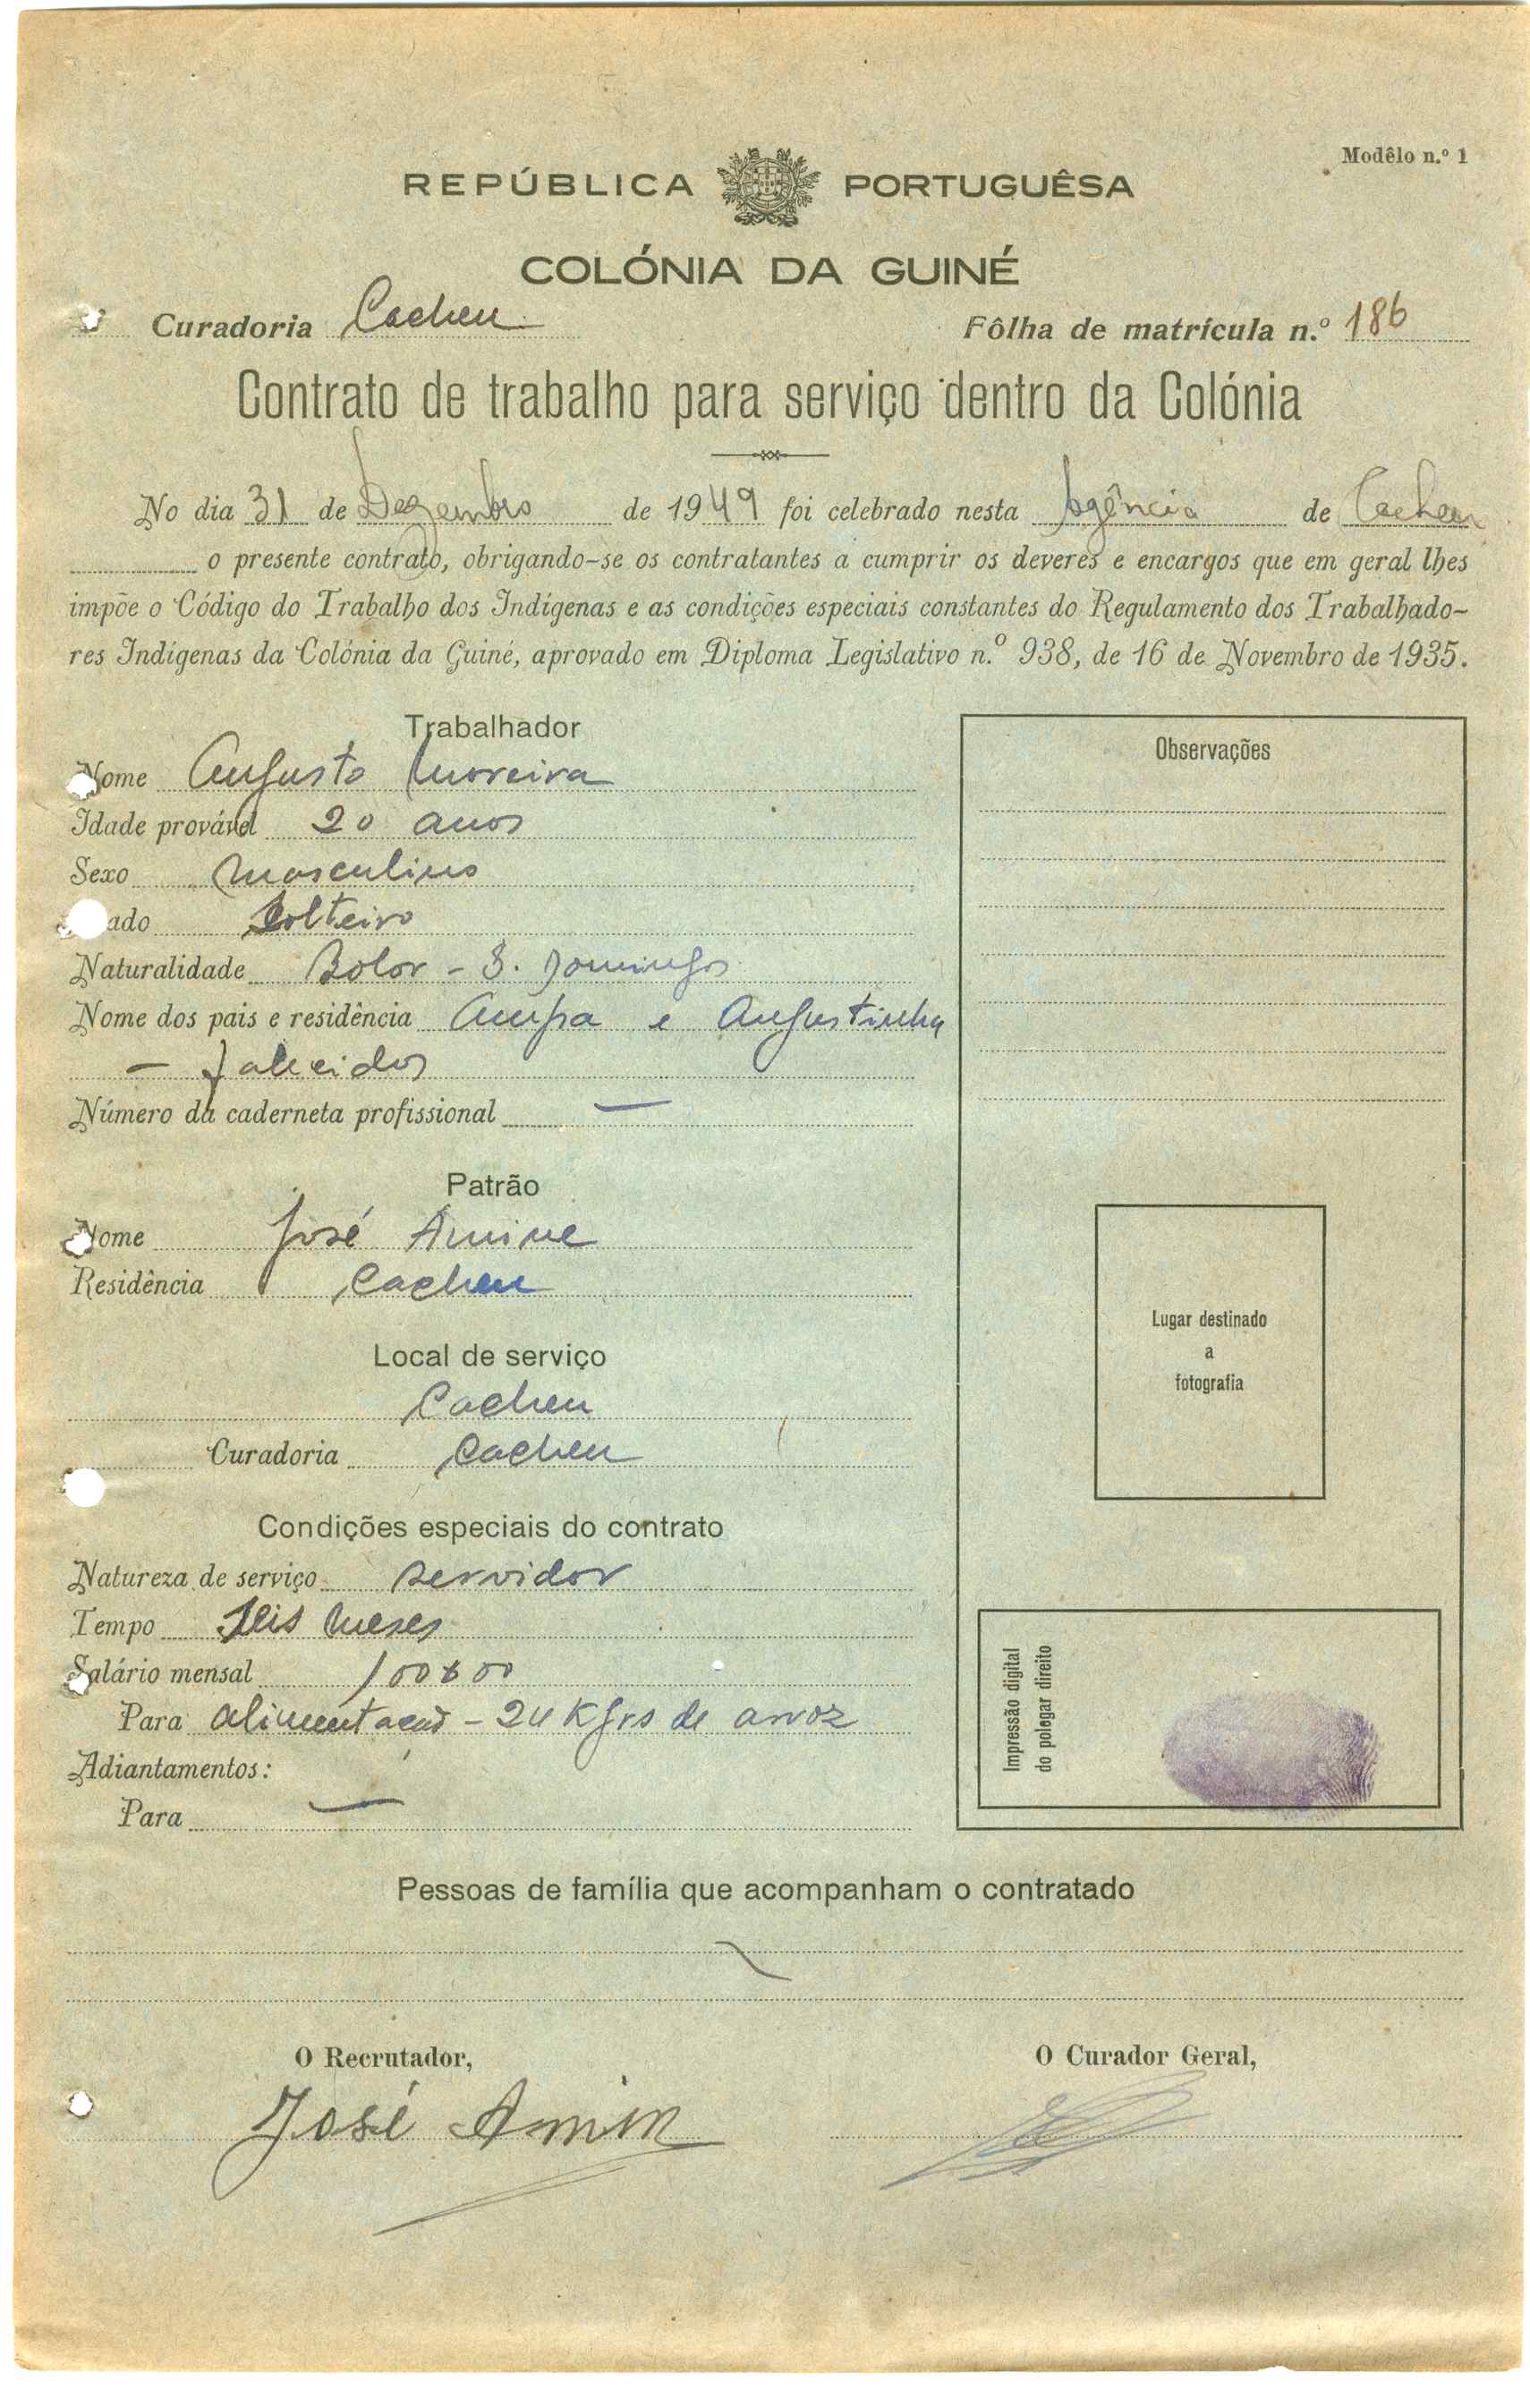 Modêlo n.º 1
REPÚBLICA PORTUGUÊSA
COLÓNIA DA GUINÉ
Curadoria Cacheu Fôlha de matrícula n.º 186
Contrato de trabalho para serviço dentro da Colónia
No dia 31 de Dezembro de 1949 foi celebrado nesta Agência de Cacheu
o presente contrato, obrigando-se os contratantes a cumprir os deveres e encargos que em geral lhes
impõe o Código do Trabalho dos Indígenas e as condições especiais constantes do Regulamento dos Trabalhado-
res Indígenas da Colónia da Guiné, aprovado em Diploma Legislativo n.º 938, de 16 de Novembro de 1935.
Trabalhador
Nome Augusto Moreira
Idade provável 20 anos
Sexo Masculino
ado Solteiro
Naturalidade Bolor - S. Domingos
Nome dos pais e residência e Augustinha
- falecidos
Número da caderneta profissional —
Patrão
Nome José Amine
Residência Cacheu
Local de serviço
Cacheu
Curadoria Cacheu
Condições especiais do contrato
Natureza de serviço servidor
Tempo Seis meses
Salário mensal 100$00
Para alimentação - 24 Kgrs de arroz
Adiantamentos:
Para —
Observações
Lugar destinado
a
fotografia
Impressão digital
do polegar direito
Pessoas de família que acompanham o contratado
O Recrutador,
José Amin
O Curador Geral,